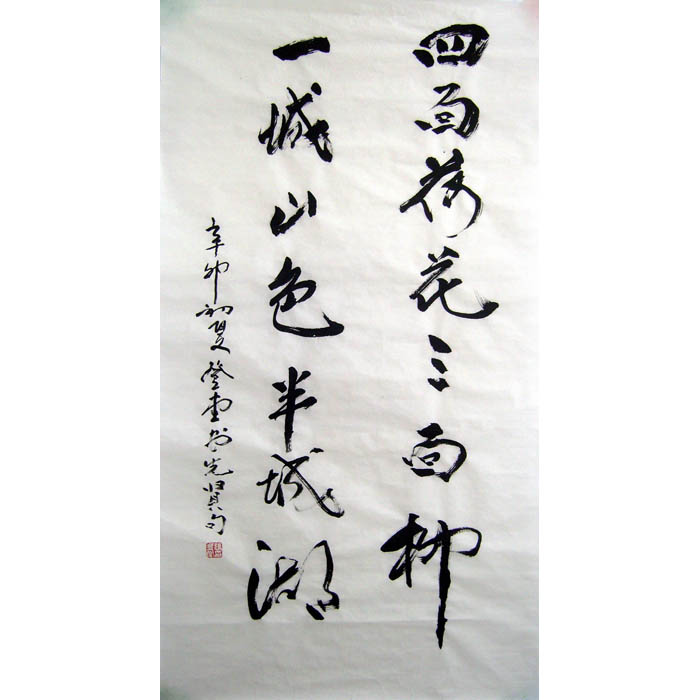 四面荷花三面柳
一城山色半城湖
辛卯初夏登堂书先贤句